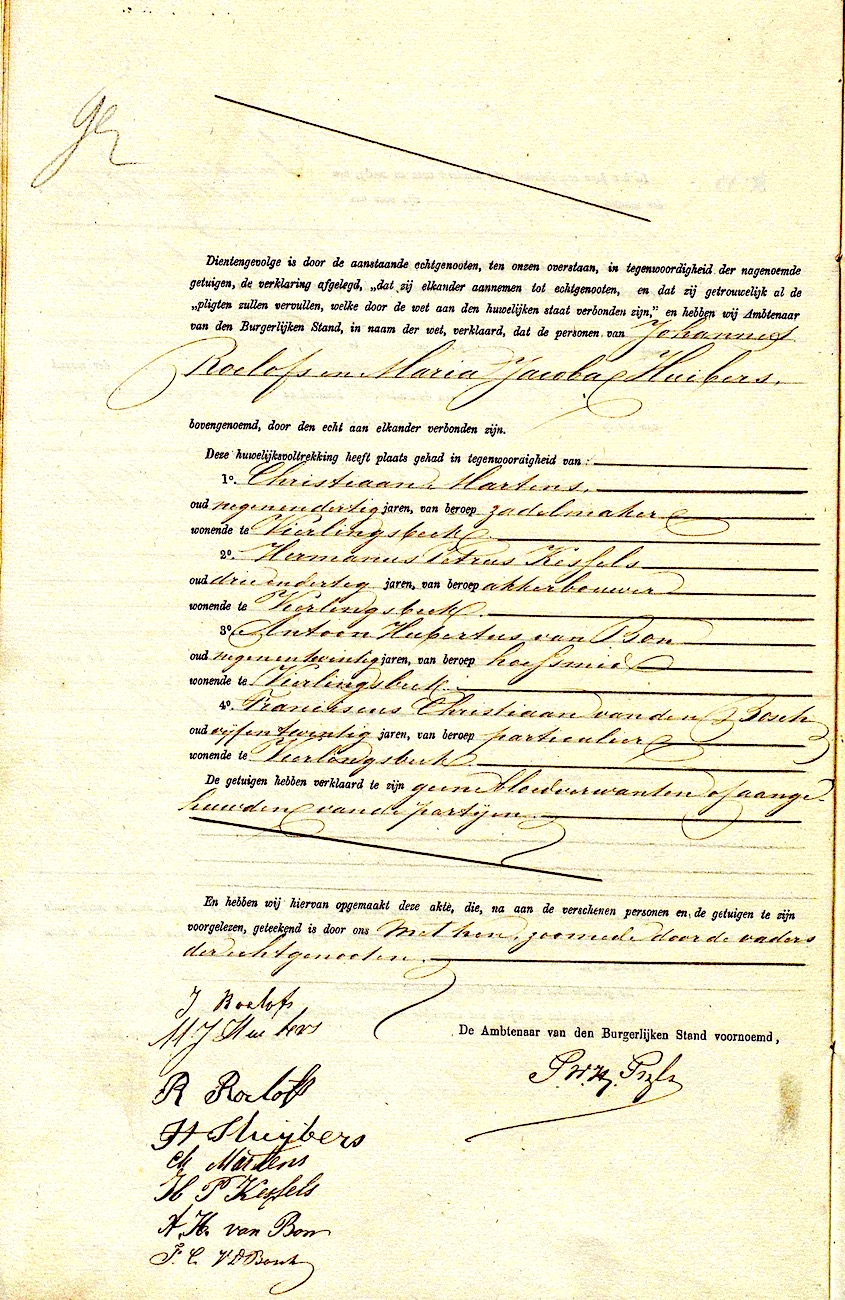 Dientengevolge is door de aanstaande echtgenooten, ten onzen overstaan, in tegenwoordigheid der nagenoemde
getuigen, de verklaring afgelegd, „dat zij elkander aannemen tot echtgenooten, en dat zij getrouwelijk al de
„pligten zullen vervullen, welke door de wet aan den huwelijken staat verbonden zijn,” en hebben wij Ambtenaar
van den Burgerlijken Stand, in naam der wet, verklaard, dat de personen van Johannes
Roelofs en Maria Jacoba Huibers,
bovengenoemd, door den echt aan elkander verbonden zijn.
Deze huwelijksvoltrekking heeft plaats gehad in tegenwoordigheid van:
1o. Christiaan Martens,
oud negenendertig jaren, van beroep zadelmaker
wonende te Vierlingsbeek
2o. Hermanus Petrus Kessels
oud drieendertig jaren, van beroep akkerbouwer
wonende te Vierlingsbeek.
3o. Antoon Hubertus van Bon
oud negenentwintig jaren, van beroep hoefsmid
wonende te Vierlingsbeek.
4o. Franciscus Christiaan van den Bosch
oud vijfentwintig jaren, van beroep particulier
wonende te Vierlingsbeek
De getuigen hebben verklaard te zijn geene bloedverwanten of aange-
huwden van de partijen.
En hebben wij hiervan opgemaakt deze akte, die, na aan de verschenen personen en de getuigen te zijn
voorgelezen, geteekend is door ons met hen, zoomede door de vaders
der echtgenooten.
J Roelofs
M. J Huibers
De Ambtenaar van den Burgerlijken Stand voornoemd,
R Roelofs
H Huijbers
Ch Martens
H P Kessels
A. H. van Bon
F. C. V D Bosch